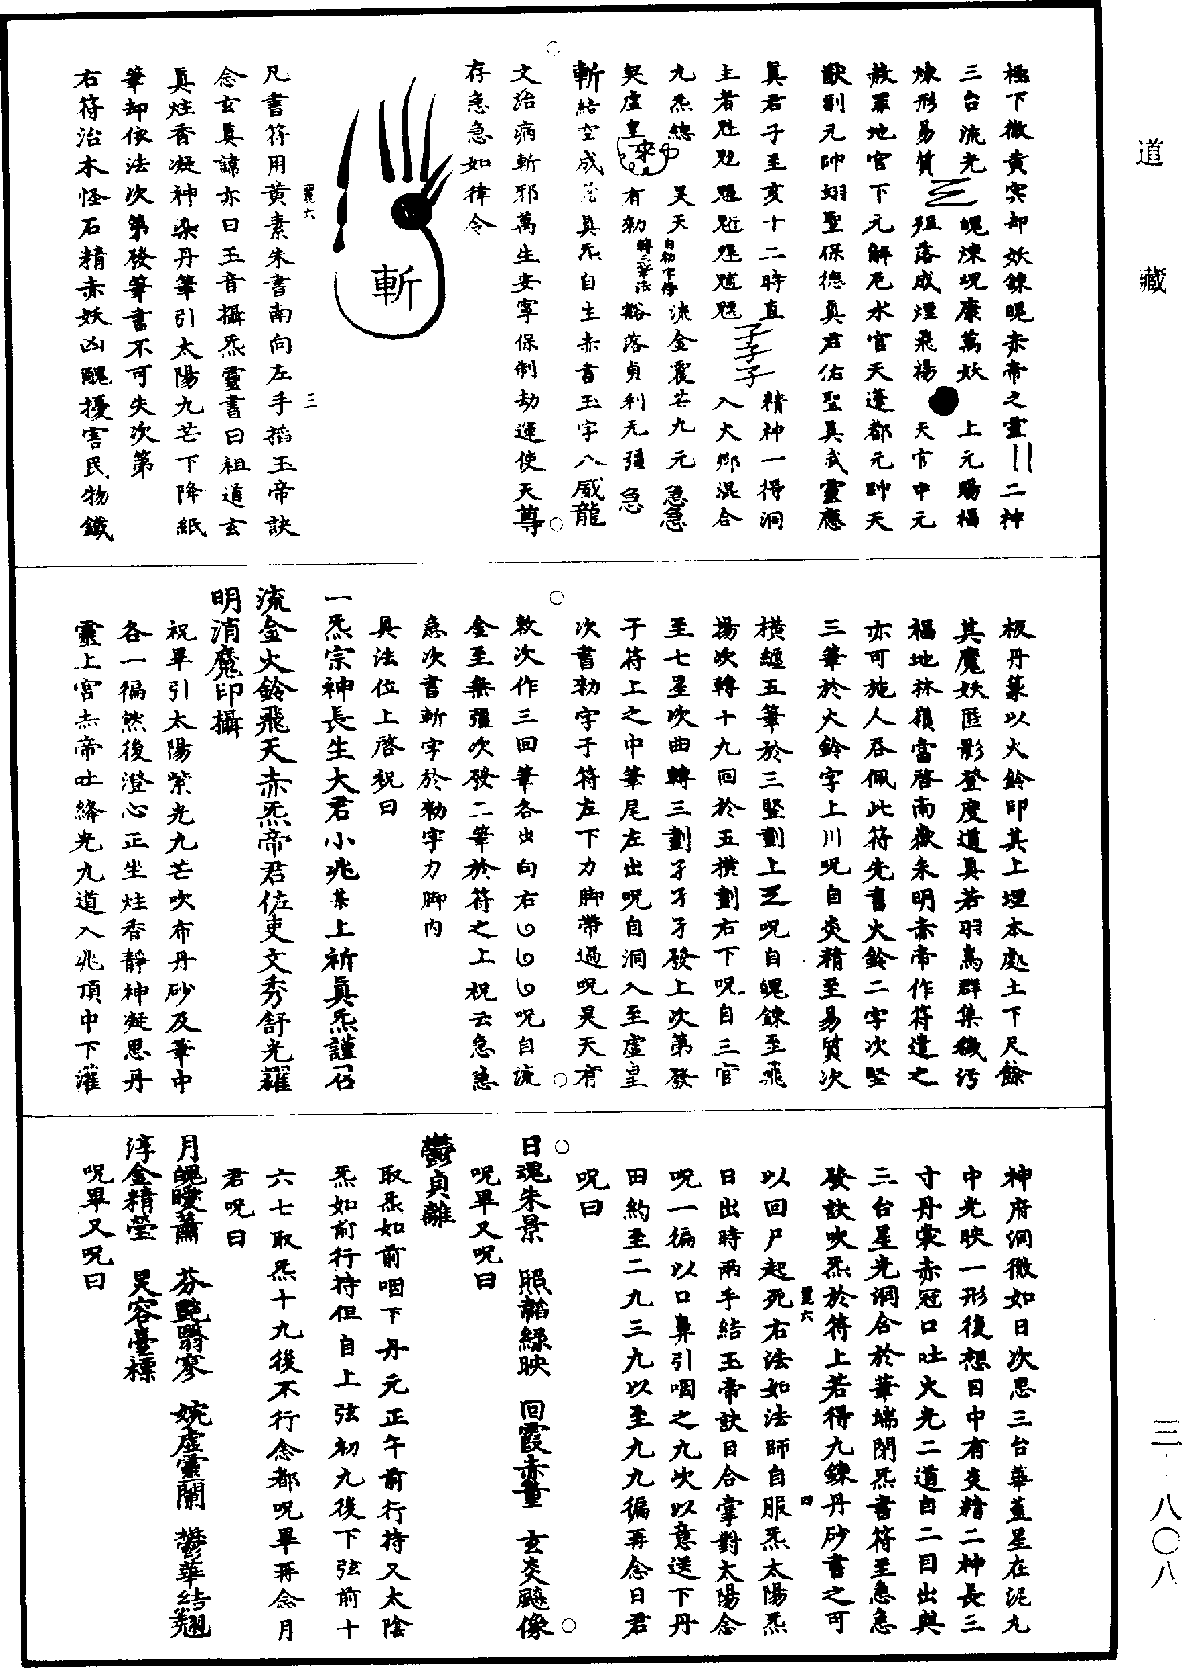 道藏
三·八〇八
極下徹黃穹却妖鍊䰟赤帝之靈二神
三台流光 䰟煉呪康萬妖 上元賜福
煉形易質 殂落成煙飛揚 天官中元
赦罪地官下元解厄水官天蓬都元帥天
猷副元帥翊聖保德真君佑聖真武靈應
真君子至亥十二時直 子子子 精神一得洞
主者 入大鄉混合
九炁總 昊天 流金震芒九元 急急
契虛皇 有勑 豁落貞利无彊 急
斬 結空成 真炁自生赤書玉字八威龍
文治病斬邪萬生安寧保制劫運使天尊
存急急如律令
斬
凡書符用黃素朱書南向左手搯玉帝訣
三
念玄真諱亦曰玉音攝炁靈書曰祖道玄
真炷香凝神染丹筆引太陽九芒下降紙
筆却依法次第發筆書不可失次第
右符治木怪石精赤妖凶醜擾害民物鐵
板丹篆以火鈴印其上埋本處土下尺餘
其魔妖匿影登度道真若羽鳥群集穢污
福地林嶺當啓南嶽朱明赤帝作符遣之
亦可施人吞佩此符先書火鈴二字次竪
三筆於火鈴字上川呪自炎精至易質次
橫纏五筆於三竪劃上 呪自䰟鍊至飛
揚次轉十九回於五橫劃右下呪自三官
至七星次曲轉三劃子子子發上次第發
于符上之中筆尾左出呪自洞入至虛皇
次書勑字于符左下力脚帶過呪昊天有
敕次作三回筆各出向右 呪自流
金至無彊次發二筆於符之上祝云急急
急次書斬字於勑字力脚內
具法位上啓祝曰
一炁宗神長生大君小兆某上祈真炁謹召
流金火鈴飛天赤炁帝君佐吏文秀舒光羅
明消魔印攝
祝畢引太陽紫光九芒吹布丹砂及筆中
各一徧然後澄心正坐炷香靜神凝思丹
靈上宮赤帝吐絳光九道入兆頂中下灌
神府洞徹如日次思三台華蓋星在泥丸
中光映一形後想日中有炎精二神長三
寸丹裳赤冠口吐火光二道自二目出與
三台星光洞合於筆端閉炁書符至急急
發訣吹炁於符上若得九鍊丹砂書之可
四
以回尸起死右法如法師自服炁太陽炁
日出時兩手結玉帝訣日合掌對太陽念
呪一徧以口鼻引咽之九次以意送下丹
田約至二九三九以至九九徧再念日君
呪曰
日魂朱景 照韜綠映 回霞赤童 玄炎飈像
呪畢又呪曰
鬱貞離
取炁如前咽下丹元正午前行持又太陰
炁如前行持但自上弦初九後下弦前十
六七取炁十九後不行念都呪畢再念月
君呪曰
月䰟曖蕭 芬艷翳寥 婉虛靈蘭 鬱華結翹
淳金精瑩 炅容臺標
呪畢又呪曰